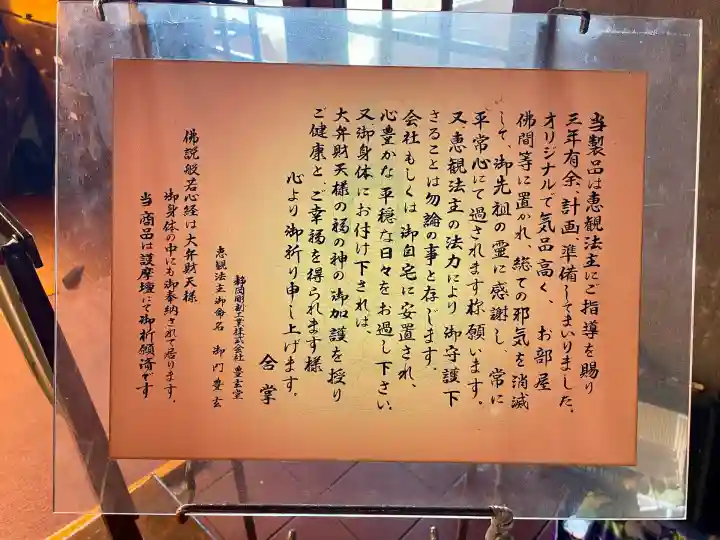 当製品は恵観法主にご指導を賜り
三年有余、計画、準備してまいりました。
オリジナルで気品高く、お部屋
佛間等に置かれ、総ての邪気を消滅
して、御先祖の霊に感謝し、常に
平常心にて過されます様願います。
又、恵観法主の法力により御守護下
さることは勿論の事と存じます。
会社もしくは御自宅に安置され、
心豊かな平穏な日々をお過し下さい。
又御身体にお付け下されば、
大弁財天様の福の神の御加護を授り
ご健康とご幸福を得られます様
心より御祈り申し上げます。
合掌
静岡彫刻工業株式会社豊玄堂
恵観法主御命名 御門豊玄
佛説般若心経は大弁財天様
御身体の中にも御奉納されて居ります。
当商品は護摩壇にて御祈願済です